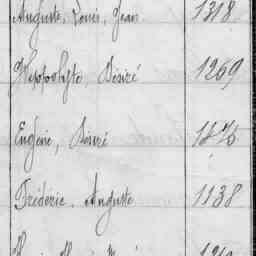 Auguste, Louis, Jean. 1318
Hippolyte, Désiré 1269
Eugène, Désiré 1276
Frédéric. Auguste 1138